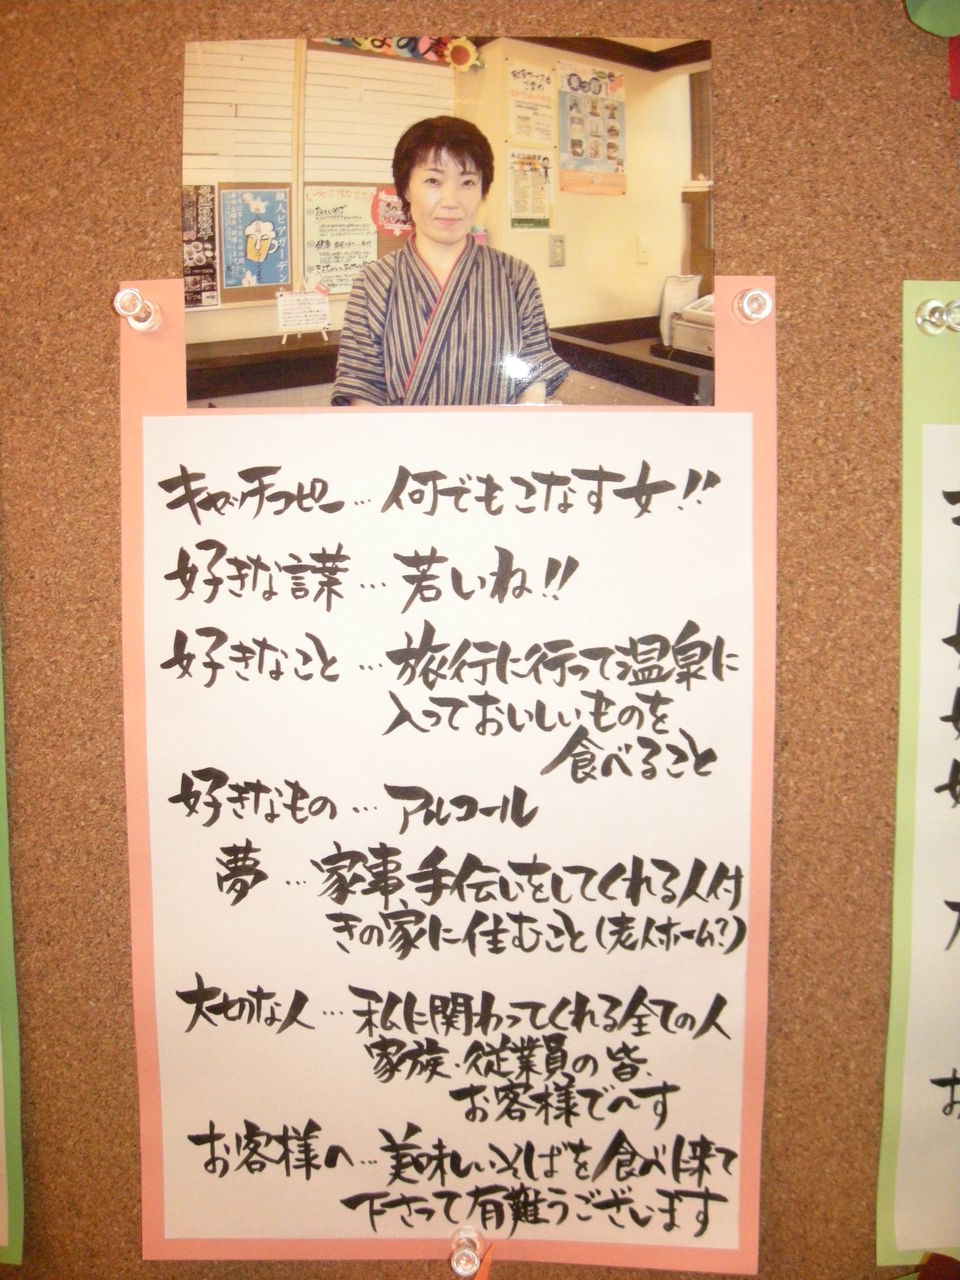 鉄人ビアガーデン
キャッチコピー…何でもこなす女!!
好きな言葉…若いね!!
好きなこと…旅行に行って温泉に
入っておいしいものを
食べること
好きなもの…アルコール
夢…家事、手伝いをしてくれる人付
きの家に住むこと(老人ホーム?)
大切な人…私に関わってくれる全ての人
家族・従業員の皆、
お客様で〜す
お客様へ…美味しいそばを食べに来て
下さって有難うございます